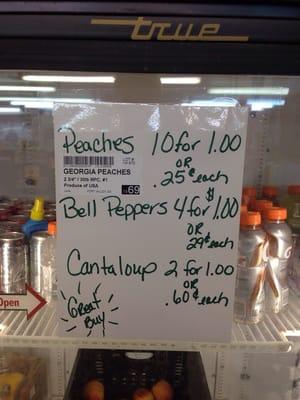 true
Peaches 10 for 1.00
OR
.25¢ each
GEORGIA PEACHES
2 3/4" / 20lb RPC, #1
Produce of USA
69
Bell Peppers 4 for $1.00
OR
29¢ each
Cantaloup 2 for 1.00
OR
.60¢ each
Great
Buy
Open